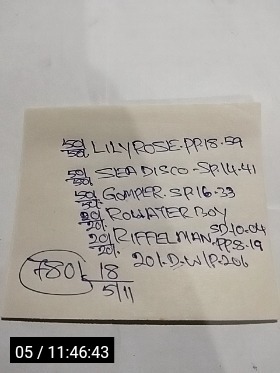 50/50/. LILYROSE-PP.18-59
50/50/. SEA DISCO-SP.14-41
50/50/. GOMPER. SP.16-33
20/20/. ROWATERBOY SP.10-04
20/20/. RIFFELMAN-PP.8-19
20/-D.W/P-206
780/- 18
5/11
05 / 11:46:43